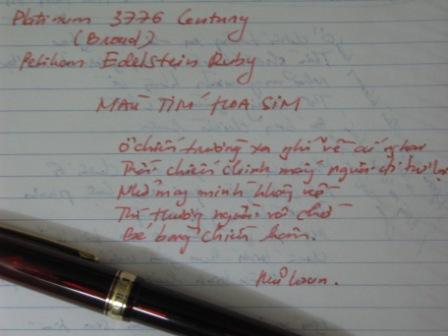 Platinum 3776 Century
(Broad)
Pelikan Edelstein Ruby
MÀU TÍM HOA SIM
Ở chiến trường xa nghĩ về cứ ngại
Thời chiến chinh mấy người đi trở lại
Nhỡ may mình không về
Thì thương người vợ chờ
Bé bỏng chiều hôm.
Hữu Loan.